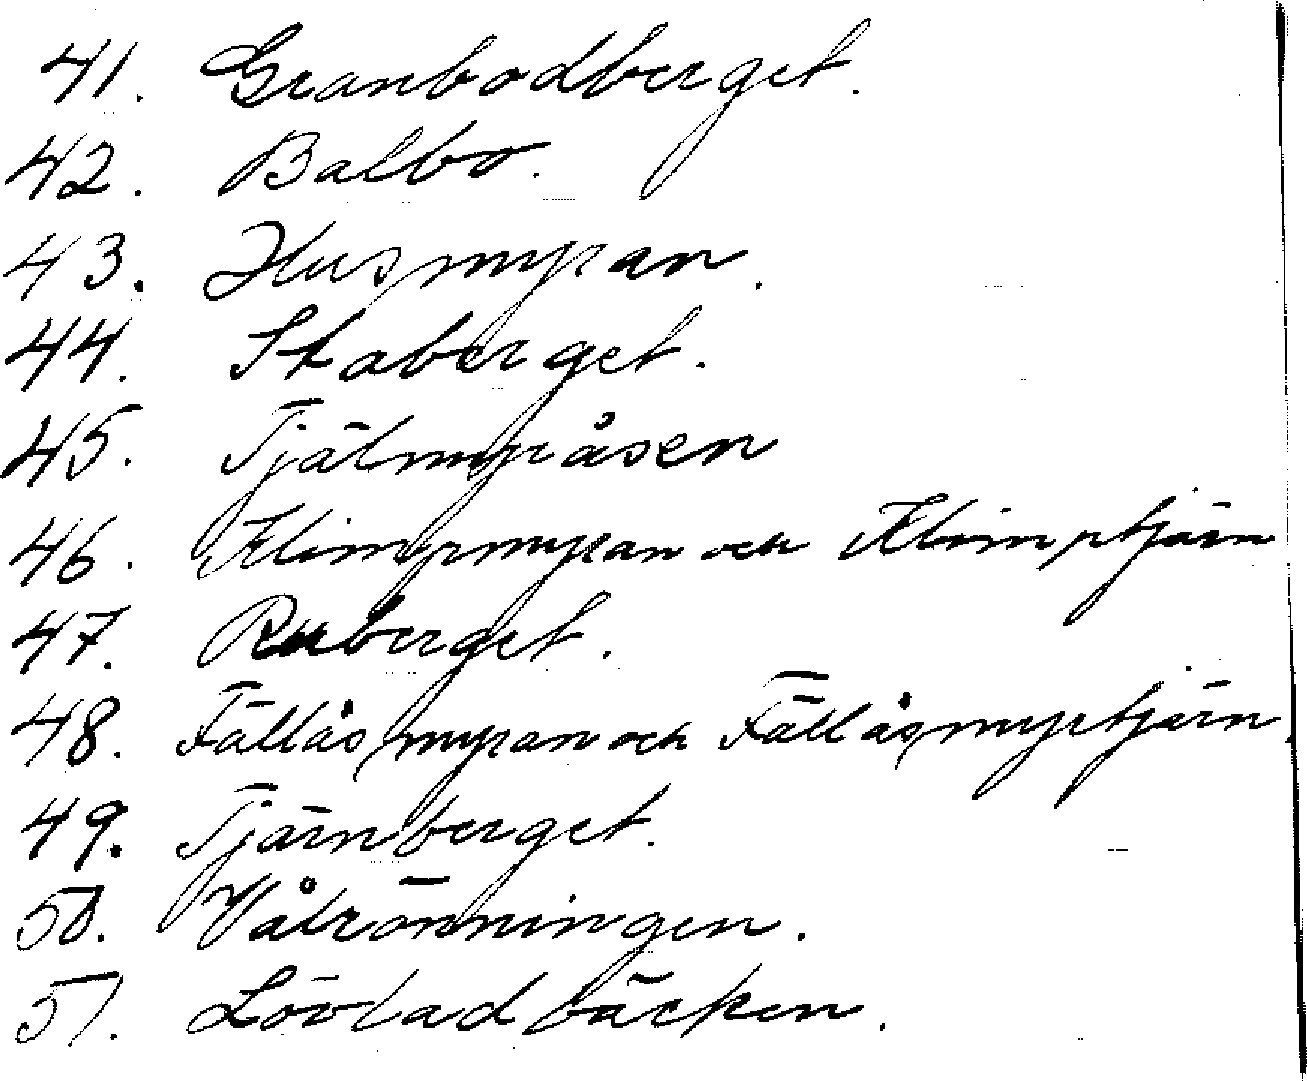 41. Granbodberget.
42. Balbo.
43. Husmyran.
44. Staberget.
45. Tjälmyråsen
46. Klimpmyran och Klimptjärn
47. Ruberget.
48. Fällåsmyran och Fällåsmyrtjärn.
49. Tjärnberget.
50. Våtrönningen.
51. Lövladbäcken.